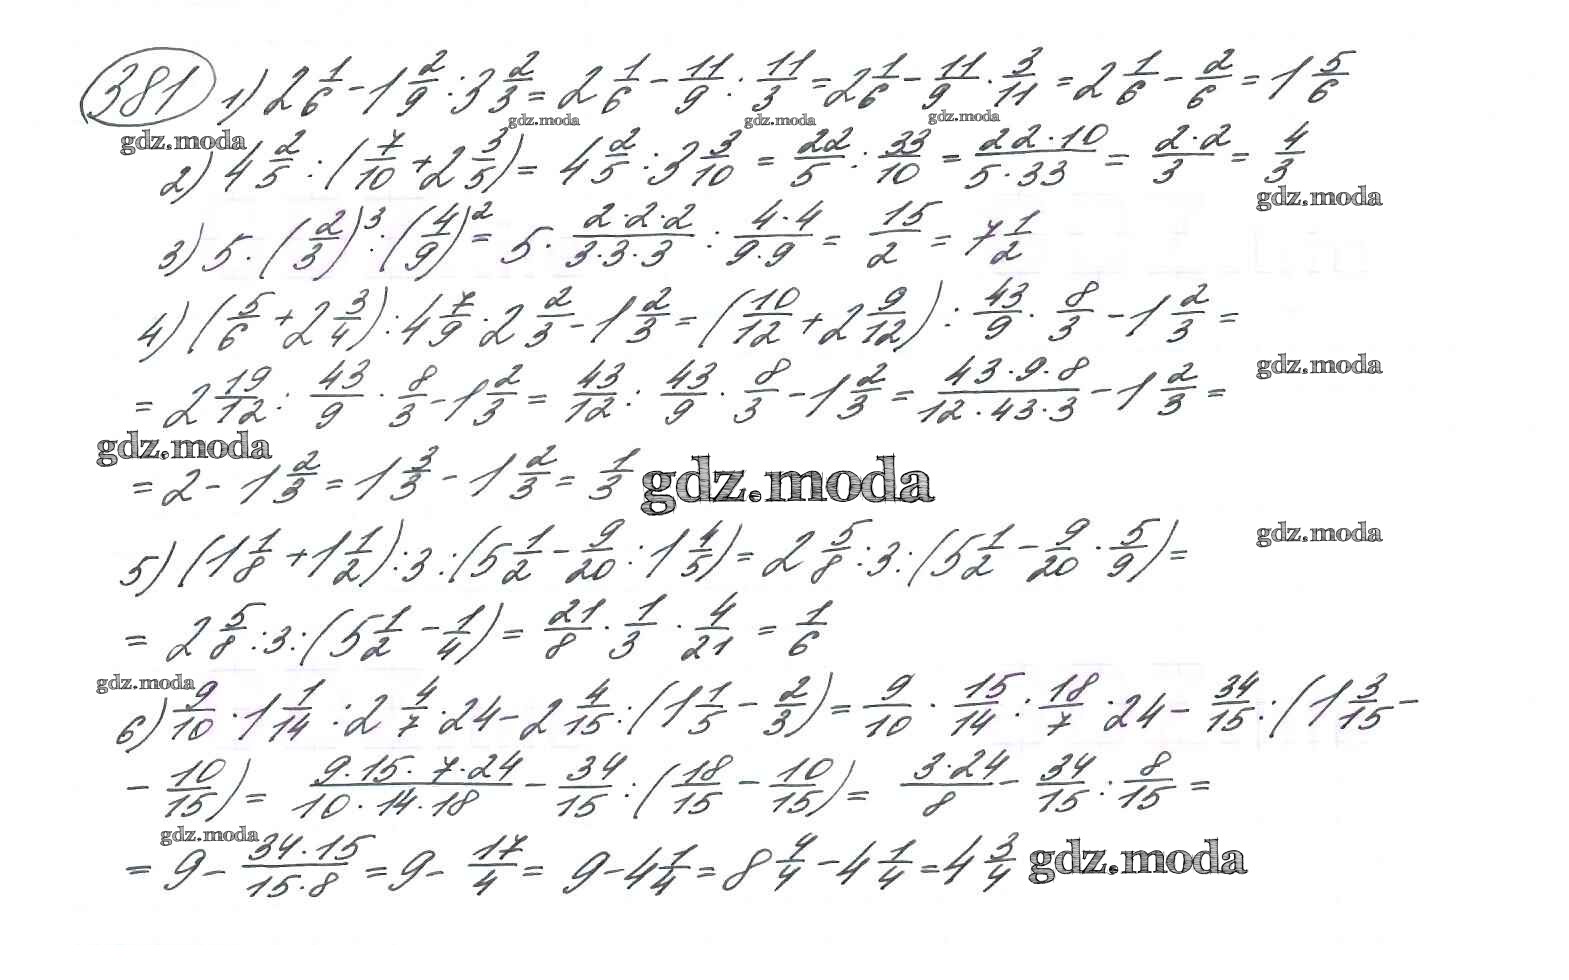 381 1) 2 1/6 - 1 2/9 : 3 2/3 = 2 1/6 - 11/9 : 11/3 = 2 1/6 - 11/9 · 3/11 = 2 1/6 - 2/6 = 1 5/6
gdz.moda gdz.moda gdz.moda gdz.moda
2) 4 2/5 : (7/10 + 2 3/5) = 4 2/5 : 3 3/10 = 22/5 : 33/10 = 22·10/5·33 = 2·2/3 = 4/3
gdz.moda
3) 5 · (2/3)³ : (4/9)² = 5 · 2·2·2/3·3·3 : 4·4/9·9 = 15/2 = 7 1/2
4) (5/6 + 2 3/4) : 4 7/9 · 2 2/3 - 1 2/3 = (10/12 + 2 9/12) : 43/9 · 8/3 - 1 2/3 =
gdz.moda
= 2 19/12 : 43/9 · 8/3 - 1 2/3 = 43/12 : 43/9 · 8/3 - 1 2/3 = 43·9·8/12·43·3 - 1 2/3 =
gdz.moda
= 2 - 1 2/3 = 1 3/3 - 1 2/3 = 1/3 gdz.moda
gdz.moda
5) (1 1/8 + 1 1/2) : 3 : (5 1/2 - 9/20 : 1 4/5) = 2 5/8 : 3 : (5 1/2 - 9/20 · 5/9) =
= 2 5/8 : 3 : (5 1/2 - 1/4) = 21/8 · 1/3 · 4/21 = 1/6
gdz.moda
6) 9/10 · 1 1/14 : 2 4/7 · 24 - 2 4/15 : (1 1/5 - 2/3) = 9/10 · 15/14 : 18/7 · 24 - 34/15 : (1 3/15 -
- 10/15) = 9·15·7·24/10·14·18 - 34/15 : (18/15 - 10/15) = 3·24/8 - 34/15 : 8/15 =
gdz.moda
= 9 - 34·15/15·8 = 9 - 17/4 = 9 - 4 1/4 = 8 4/4 - 4 1/4 = 4 3/4 gdz.moda